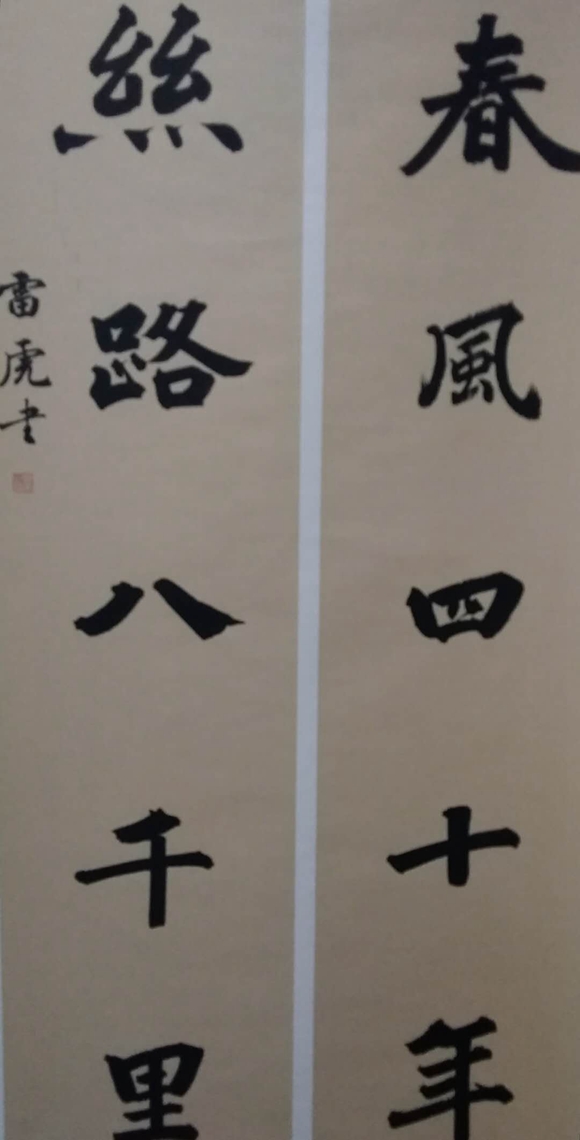 春風四十年
絲路八千里
雷虎书